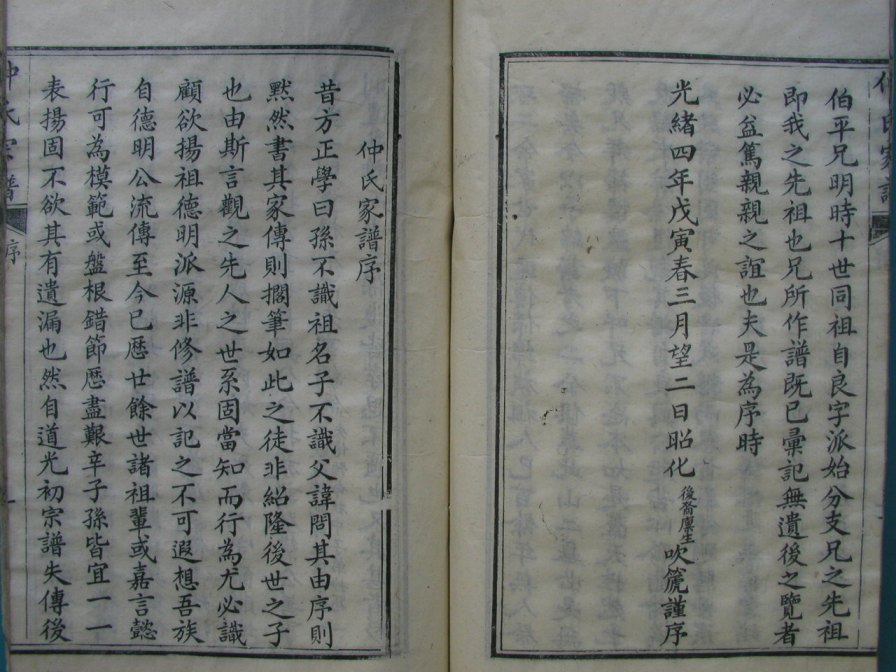 伯平兄明時十世同祖自良字派始分支兄之先祖
即我之先祖也兄所作譜既已彙記無遺後之覽者
必益篤親親之誼也夫是為序時
光緒四年戊寅春三月望二日昭化後裔廩生吹篪謹序
仲氏家譜序
昔方正學曰孫不識祖名子不識父諱問其由序則
黙然書其家傳則擱筆如此之徒非紹隆後世之子
也由斯言觀之先人之世系固當知而行為尤必識
顧欲揚祖德明派源非修譜以記之不可遐想吾族
自德明公流傳至今已歷廿餘世諸祖輩或嘉言懿
行可為模範或盤根錯節歷盡艱辛子孫皆宜一一
表揚固不欲其有遺漏也然自道光初宗譜失傳後
仲氏宗譜
序